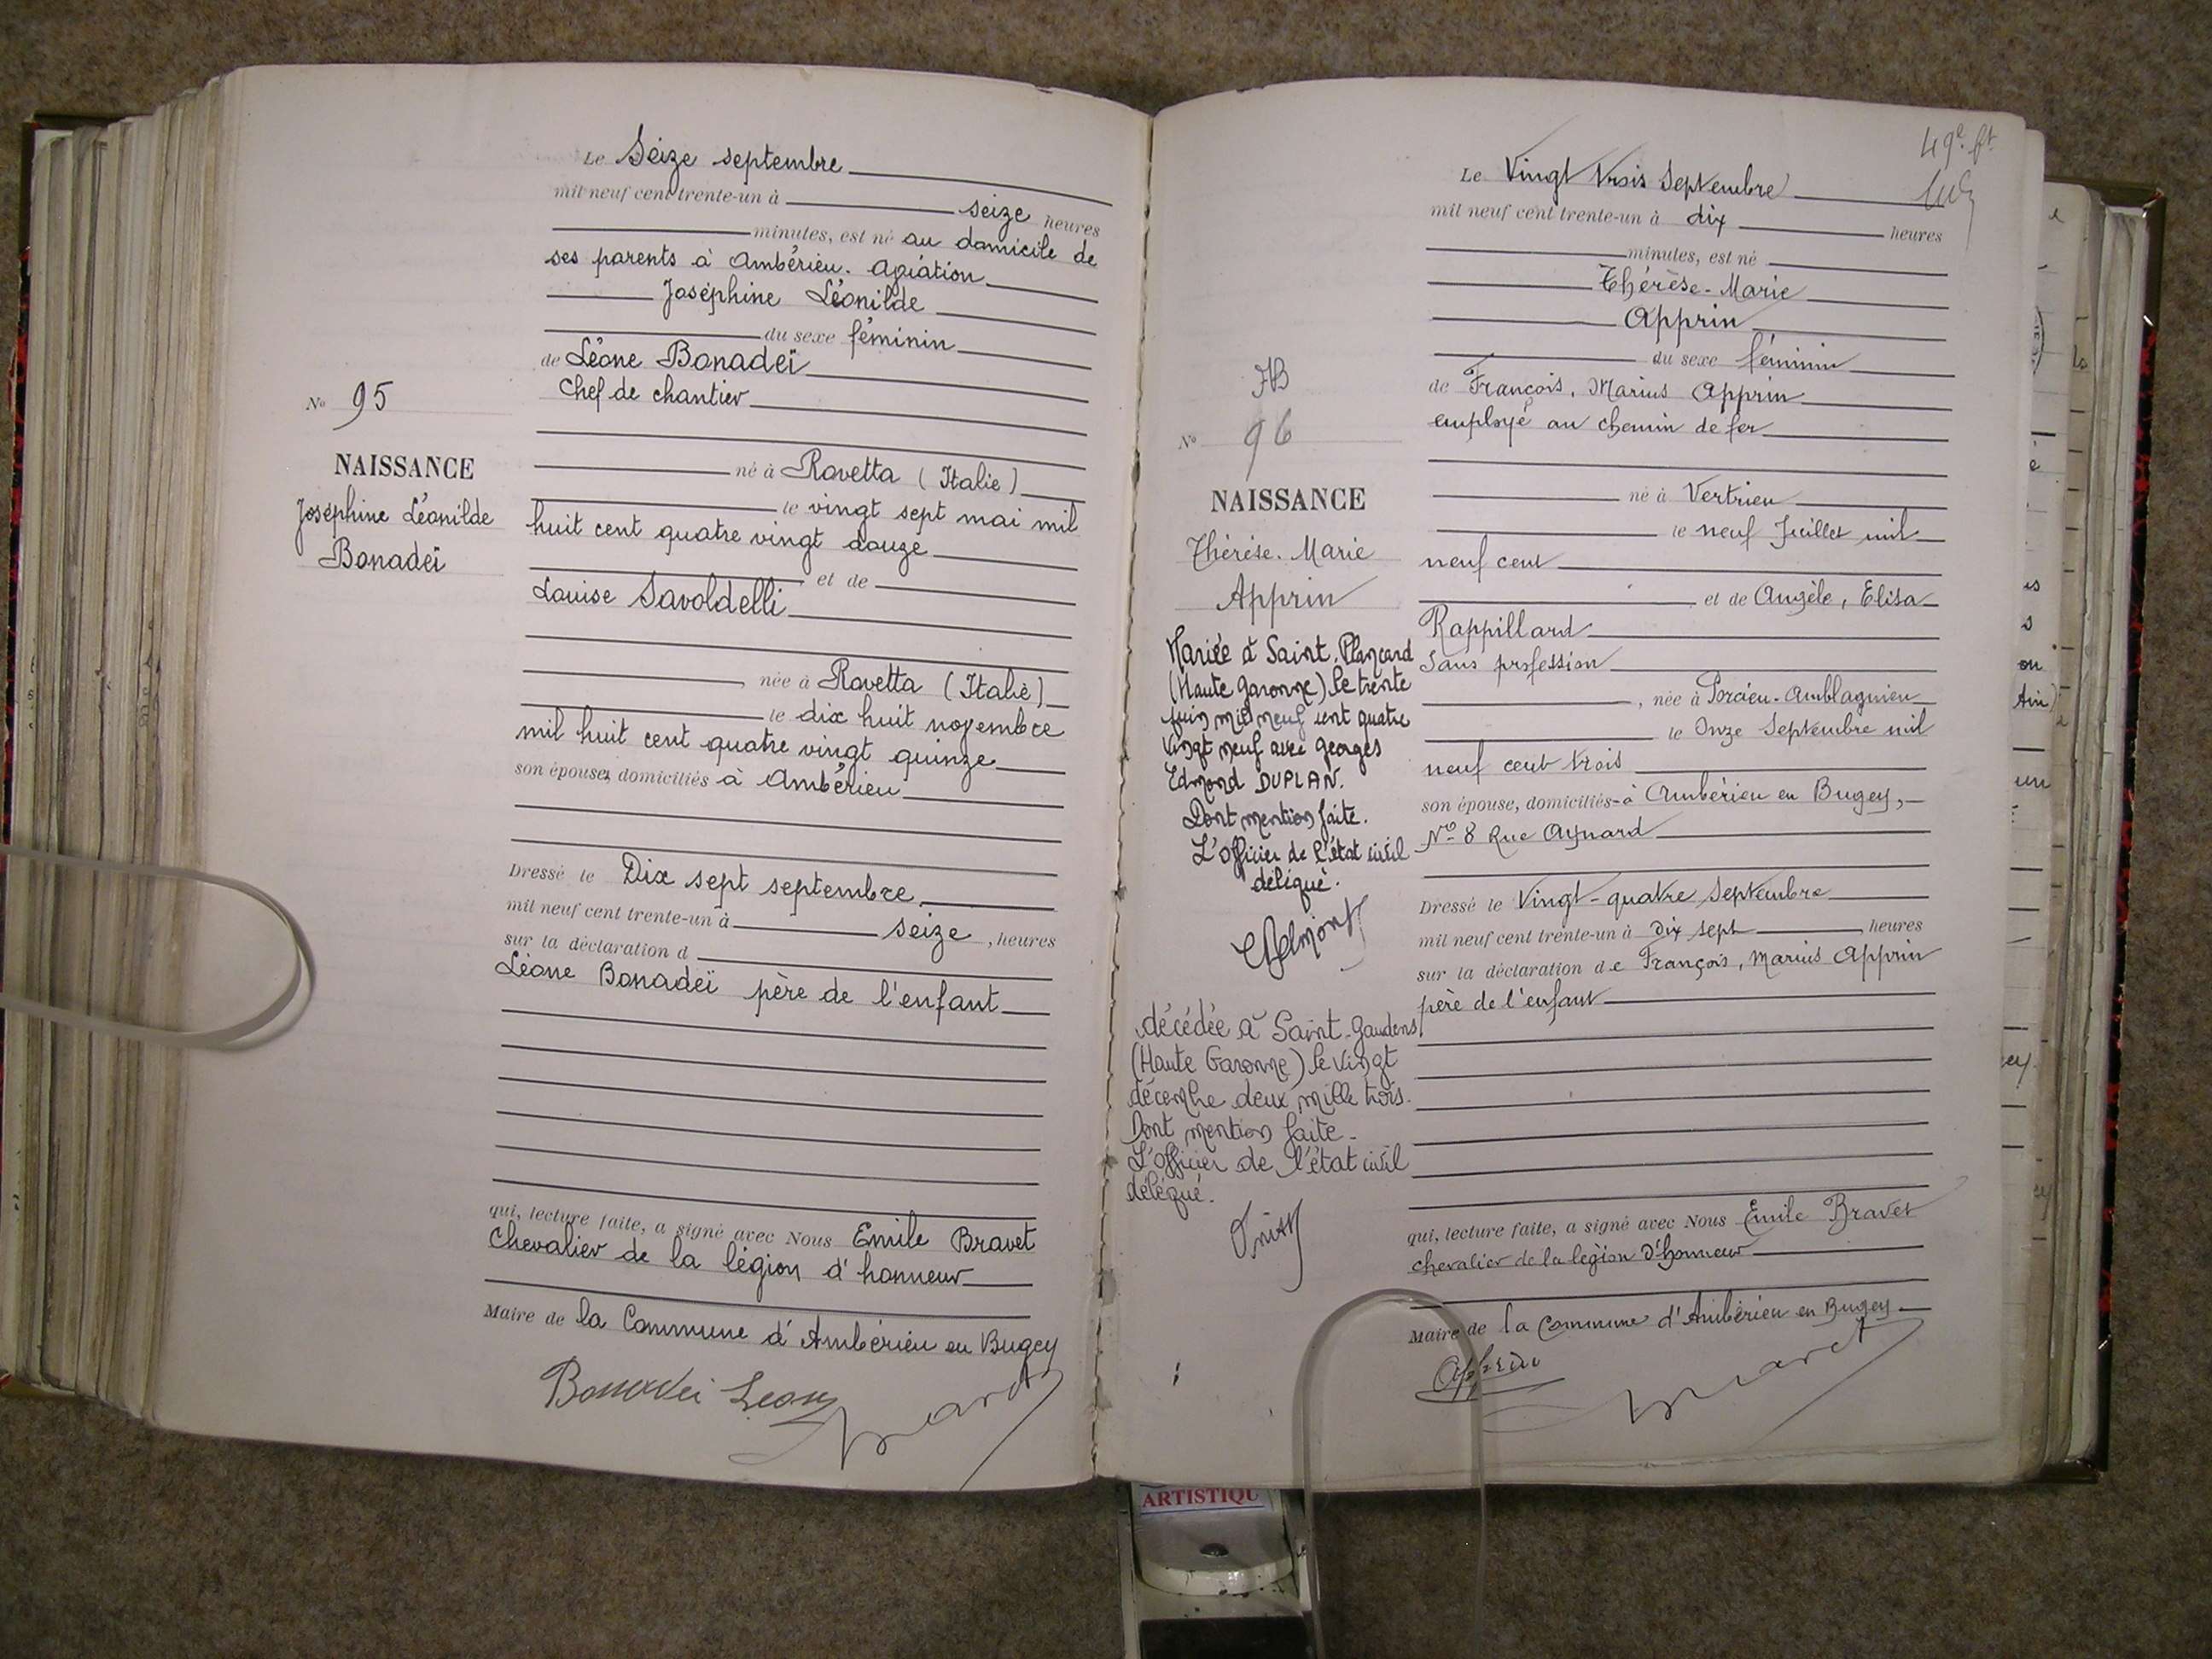 Le Seize septembre
mil neuf cent trente-un à seize heures
minutes, est né au domicile de
ses parents à Ambérieu. Aviation
Joséphine Léonilde
du sexe féminin
de Léone Bonadeï
Chef de chantier
N° 95
né à Rovetta (Italie)
NAISSANCE
le vingt sept mai mil
Joséphine Léonilde
Bonadeï
huit cent quatre vingt douze
et de
Louise Savoldelli
née à Rovetta (Italie)
le dix huit novembre
mil huit cent quatre vingt quinze
son épouse, domiciliés à Ambérieu
Dressé le Dix sept septembre
mil neuf cent trente-un à seize, heures
sur la déclaration d
Léone Bonadeï père de l'enfant
qui, lecture faite, a signé avec Nous Emile Bravet
Chevalier de la légion d'honneur
Maire de la Commune d'Ambérieu en Bugey
Bonadei Leone
49e ft
Le Vingt trois Septembre
mil neuf cent trente-un à dix heures
minutes, est né
Thérèse-Marie
Apprin
du sexe féminin
de François, Marius Apprin
employé au chemin de fer
N° 96
né à Vertrieu
NAISSANCE
le neuf Juillet mil
Thérèse. Marie
Apprin
neuf cent
et de Angèle, Elisa
Rappillard
Sans profession
née à Porcieu-Amblagnieu
le Onze Septembre mil
neuf cent trois
son épouse, domiciliés à Ambérieu en Bugey,
N° 8 Rue Aynard
Mariée à Saint. Plancard
(Haute Garonne) le trente
juin mil neuf cent quatre
vingt neuf avec Georges
Edmond DUPLAN.
Dont mention faite.
L'officier de l'état civil
délégué.
Dressé le Vingt-quatre Septembre
mil neuf cent trente-un à Dix sept heures
sur la déclaration de François, Marius Apprin
père de l'enfant
décédée à Saint-Gaudens
(Haute Garonne) le vingt
décembre deux mille trois.
Dont mention faite.
L'officier de l'état civil
délégué.
qui, lecture faite, a signé avec Nous Emile Bravet
chevalier de la légion d'honneur
Maire de la Commune d'Ambérieu en Bugey
Apprin
ARTISTIQU